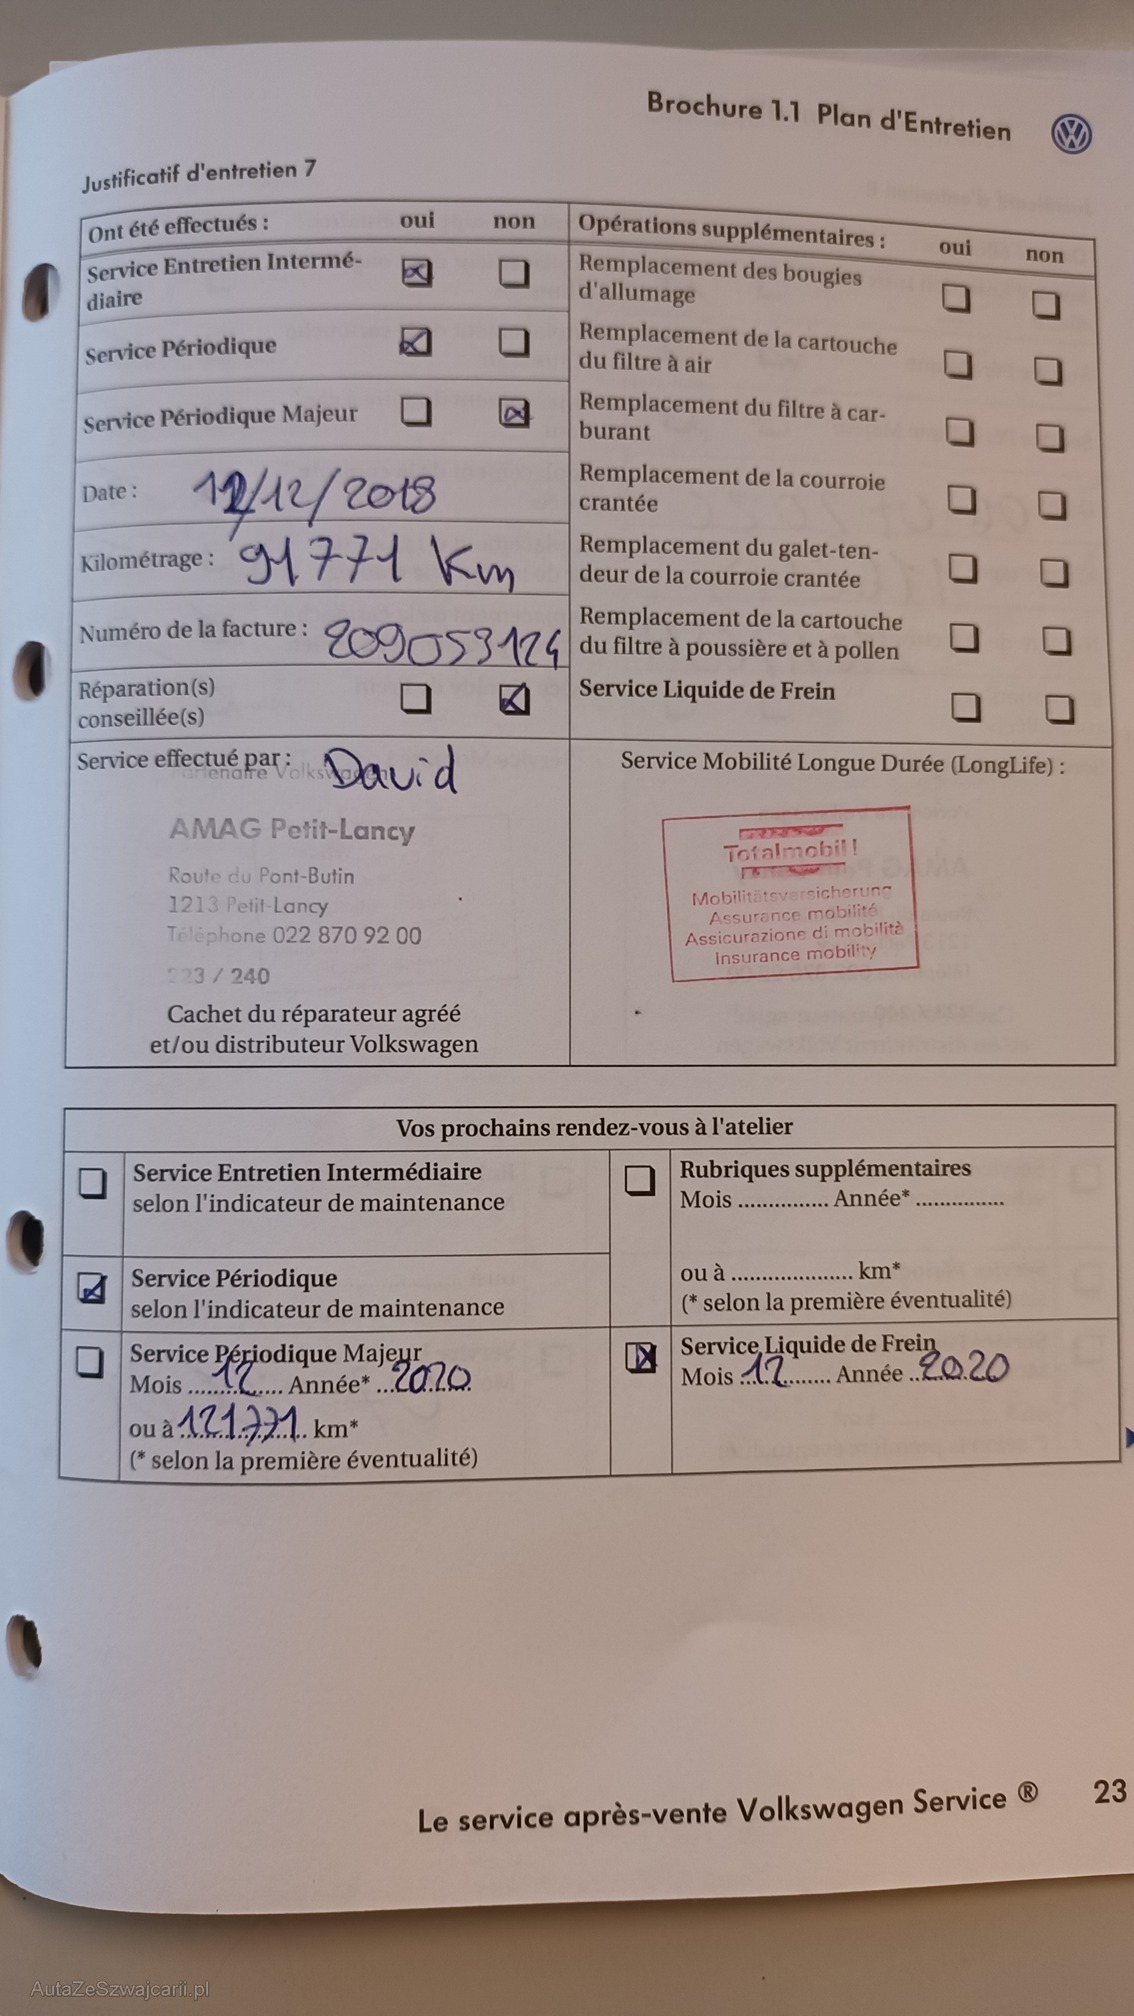 Brochure 1.1 Plan d'Entretien
VW
Justificatif d'entretien 7
Ont été effectués : oui non
Service Entretien Intermé-
diaire
Service Périodique
Service Périodique Majeur
Date : /12/2018
Kilométrage : 91771 Km
Numéro de la facture : 209053124
Réparation(s)
conseillée(s)
Opérations supplémentaires : oui non
Remplacement des bougies
d'allumage
Remplacement de la cartouche
du filtre à air
Remplacement du filtre à car-
burant
Remplacement de la courroie
crantée
Remplacement du galet-ten-
deur de la courroie crantée
Remplacement de la cartouche
du filtre à poussière et à pollen
Service Liquide de Frein
Service effectué par : David
Partenaire Volkswagen
AMAG Petit-Lancy
Route du Pont-Butin
1213 Petit-Lancy
Téléphone 022 870 92 00
223 / 240
Cachet du réparateur agréé
et/ou distributeur Volkswagen
Service Mobilité Longue Durée (LongLife) :
Totalmobil!
Mobilitätsversicherung
Assurance mobilité
Assicurazione di mobilità
Insurance mobility
Vos prochains rendez-vous à l'atelier
Service Entretien Intermédiaire
selon l'indicateur de maintenance
Service Périodique
selon l'indicateur de maintenance
Service Périodique Majeur
Mois ...12... Année* ...2020...
ou à 121771 km*
(* selon la première éventualité)
Rubriques supplémentaires
Mois ............... Année* ...............
ou à .................... km*
(* selon la première éventualité)
Service Liquide de Frein
Mois ...12... Année ...2020
Le service après-vente Volkswagen Service ® 23
AutaZeSzwajcarii.pl